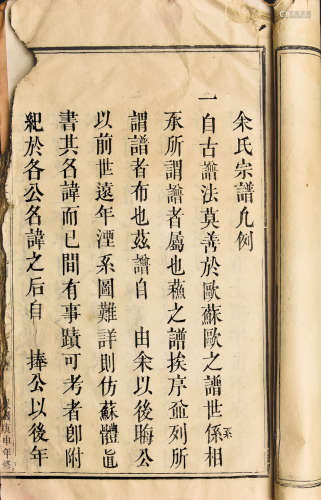 余氏宗譜凡例
一自古譜法莫善於歐蘇歐之譜世係相系
承所謂譜者屬也蘇之譜挨序並列所
謂譜者布也茲譜自　由余以後晦公
以前世遠年湮系圖難詳則仿蘇體直
書其名諱而已間有事蹟可考者卽附
紀於各公名諱之后自　捧公以後年